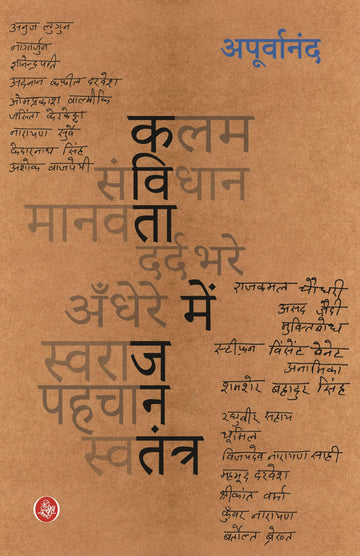 अनुज लुगुन
नागार्जुन
ज्ञानेन्द्रपति
अदनान कफ़ील दरवेश
ओमप्रकाश वाल्मीकि
जसिंता केरकेट्टा
नारायण सुर्वे
केदारनाथ सिंह
अशोक वाजपेयी
अपूर्वानंद
कलम
संविधान
मानवता
दर्द भरे
अँधेरे में
स्वराज
पहचान
स्वतंत्र
राजकमल चौधरी
असद ज़ैदी
मुक्तिबोध
स्टीफन विंसेंट बेनेट
अनामिका
शमशेर बहादुर सिंह
रघुवीर सहाय
धूमिल
विजयदेव नारायण साही
महमूद दरवेश
श्रीकांत वर्मा
कुँवर नारायण
बर्तोल्त ब्रेख्त